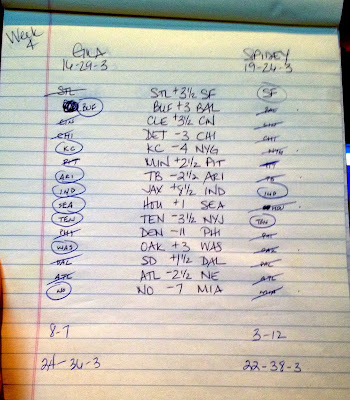 Week
4
GINA SPIDEY
16-29-3 19-26-3
STL STL +3½ SF SF
BUF BUF +3 BAL BAL
CIN CLE +3½ CIN CIN
CHI DET -3 CHI CHI
KC KC -4 NYG NYG
PIT MIN +2½ PIT PIT
ARI TB -2½ ARI TB
IND JAX +8½ IND IND
SEA HOU +1 SEA HOU
TEN TEN -3½ NYJ TEN
PHI DEN -11 PHI PHI
WAS OAK +3 WAS
DAL SD +1½ DAL DAL
ATL ATL -2½ NE ATL
NO NO -7 MIA MIA
8-7 3-12
24-36-3 22-38-3